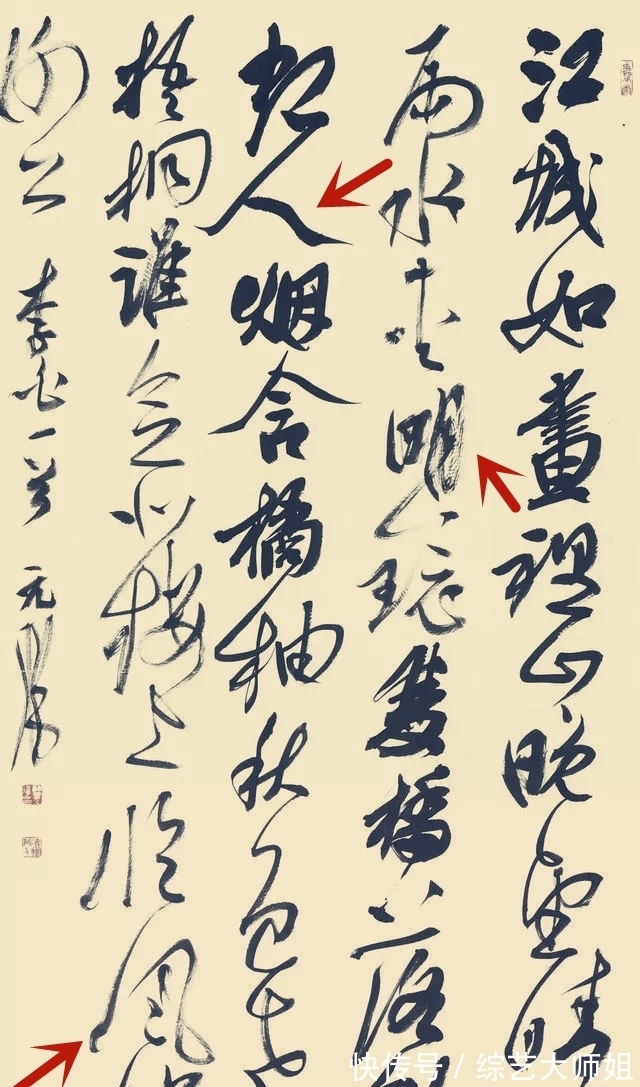 江城如畫裡山晚望晴
兩水夾明鏡雙橋落
虹人烟含橘柚秋色老
梧桐誰念北樓上臨風
謝公 李白一首 元
快传号 / 综艺大师姐